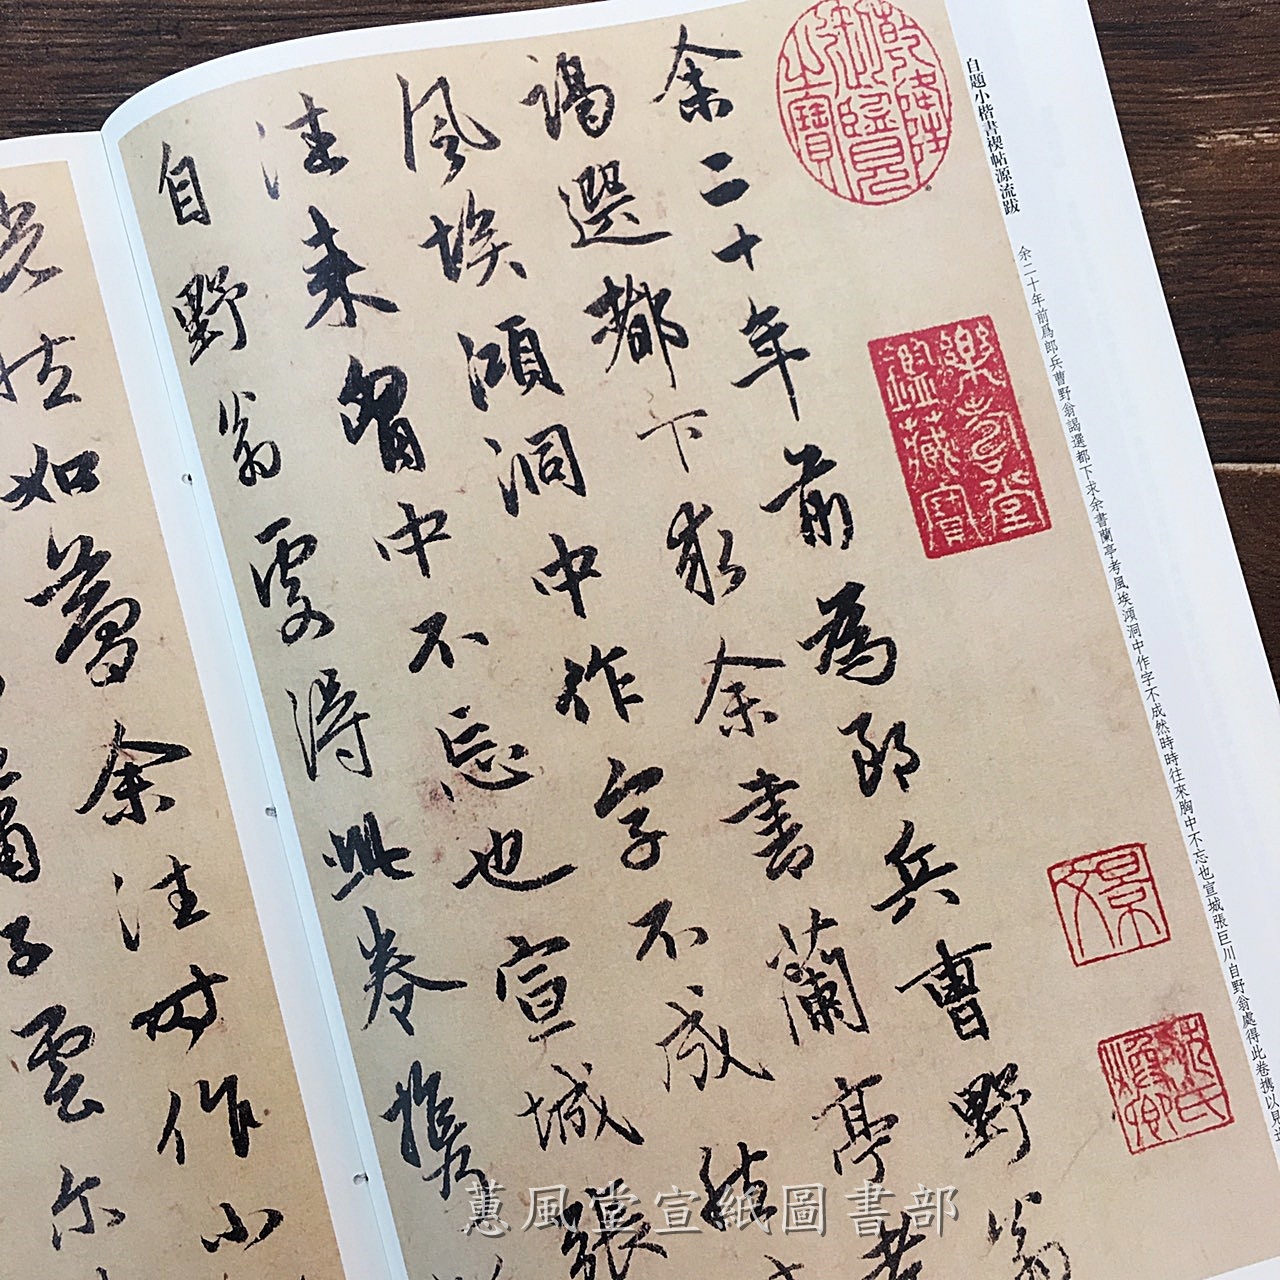 自題小楷書禊帖源流跋
余二十年前爲郎兵曹野翁謁選都下求余書蘭亭考風埃澒洞中作字不成然時時往來胸中不忘也宣城張巨川自野翁處得此卷携以見
乾隆御覽之寶
樂壽堂鑑藏寶
景文
余二十年前為郎兵曹野翁
謁選都下求余書蘭亭考
風埃澒洞中作字不成然
往来胷中不忘也宣城張
自野翁處得此卷携
如夢余往時作小
子雲尓
蕙風堂宣紙圖書部